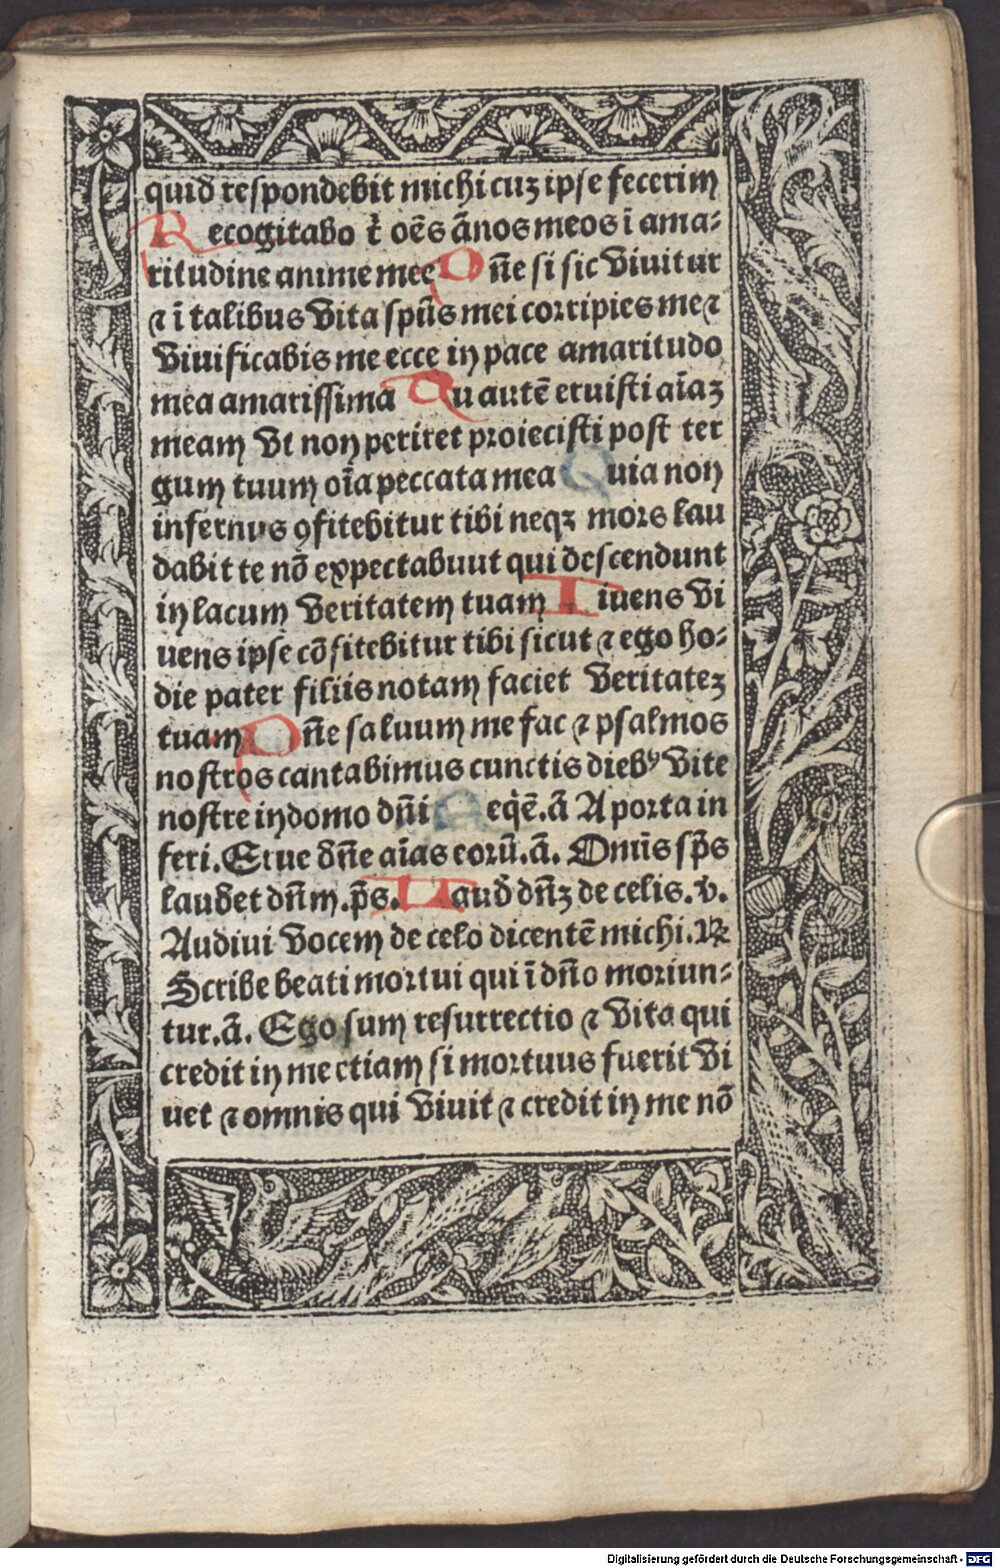 quid respondebit michi cuꝫ ipse fecerim
Recogitabo t̄ oēs ānos meos ī ama⸗
ritudine anime mee Dn̄e si sic viuitur
⁊ ī talibus vita spūs mei corripies me ⁊
viuificabis me ecce in pace amaritudo
mea amarissima Tu autē eruisti aīaꝫ
meam vt non periret proiecisti post ter
gum tuum oīa peccata mea Quia non
infernus ꝯfitebitur tibi neqꝫ mors lau
dabit te nō expectabuut qui descendunt
in lacum veritatem tuam Viuens vi
uens ipse cōfitebitur tibi sicut ⁊ ego ho⸗
die pater filiis notam faciet veritateꝫ
tuam Dn̄e saluum me fac ⁊ psalmos
nostros cantabimus cunctis diebꝰ vite
nostre in domo dn̄i Reqē.ā A porta in
feri. Erue dn̄e aīas eorū.ā. Omīs sp̄s
laudet dn̄m.p̄s. Laud̄ dn̄ꝫ de celis.v.
Audiui vocem de celo dicentē michi.℞
Scribe beati mortui qui ī dn̄o moriun⸗
tur.ā. Ego sum resurrectio ⁊ vita qui
credit in me etiam si mortuus fuerit vi
uet ⁊ omnis qui viuit ⁊ credit in me nō
Digitalisierung gefördert durch die Deutsche Forschungsgemeinschaft - DFG